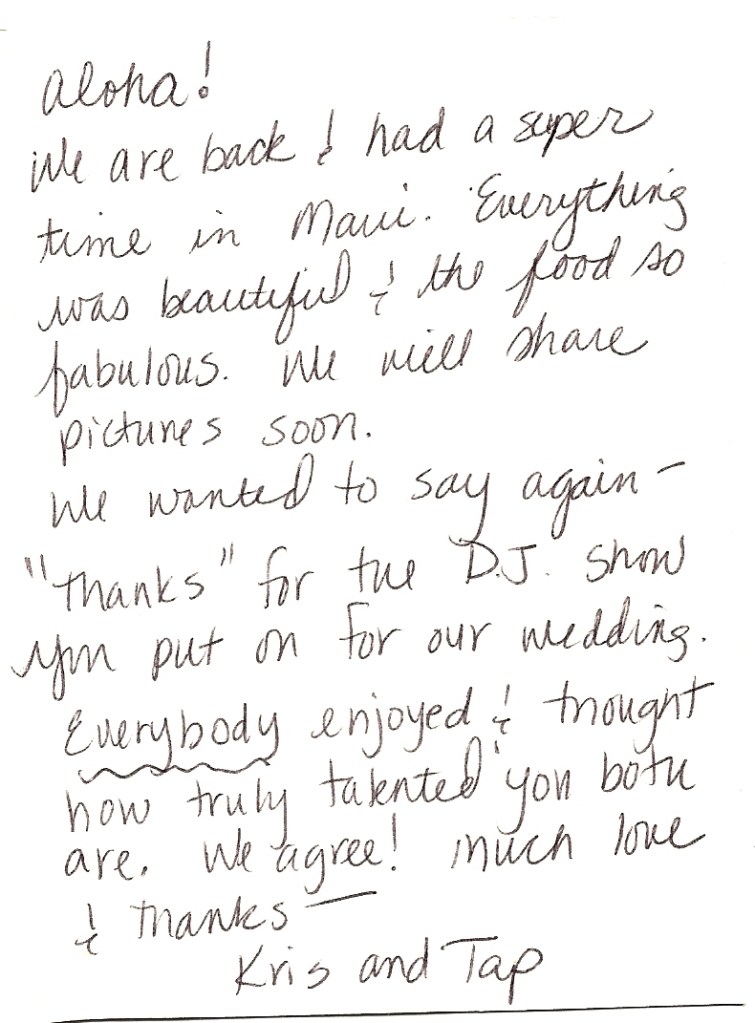 Aloha!
We are back & had a super
time in Maui. Everything
was beautiful & the food so
fabulous. We will share
pictures soon.
We wanted to say again -
"thanks" for the D.J. show
you put on for our wedding.
Everybody enjoyed & thought
how truly talented you both
are. We agree! Much love
& thanks —
Kris and Tap